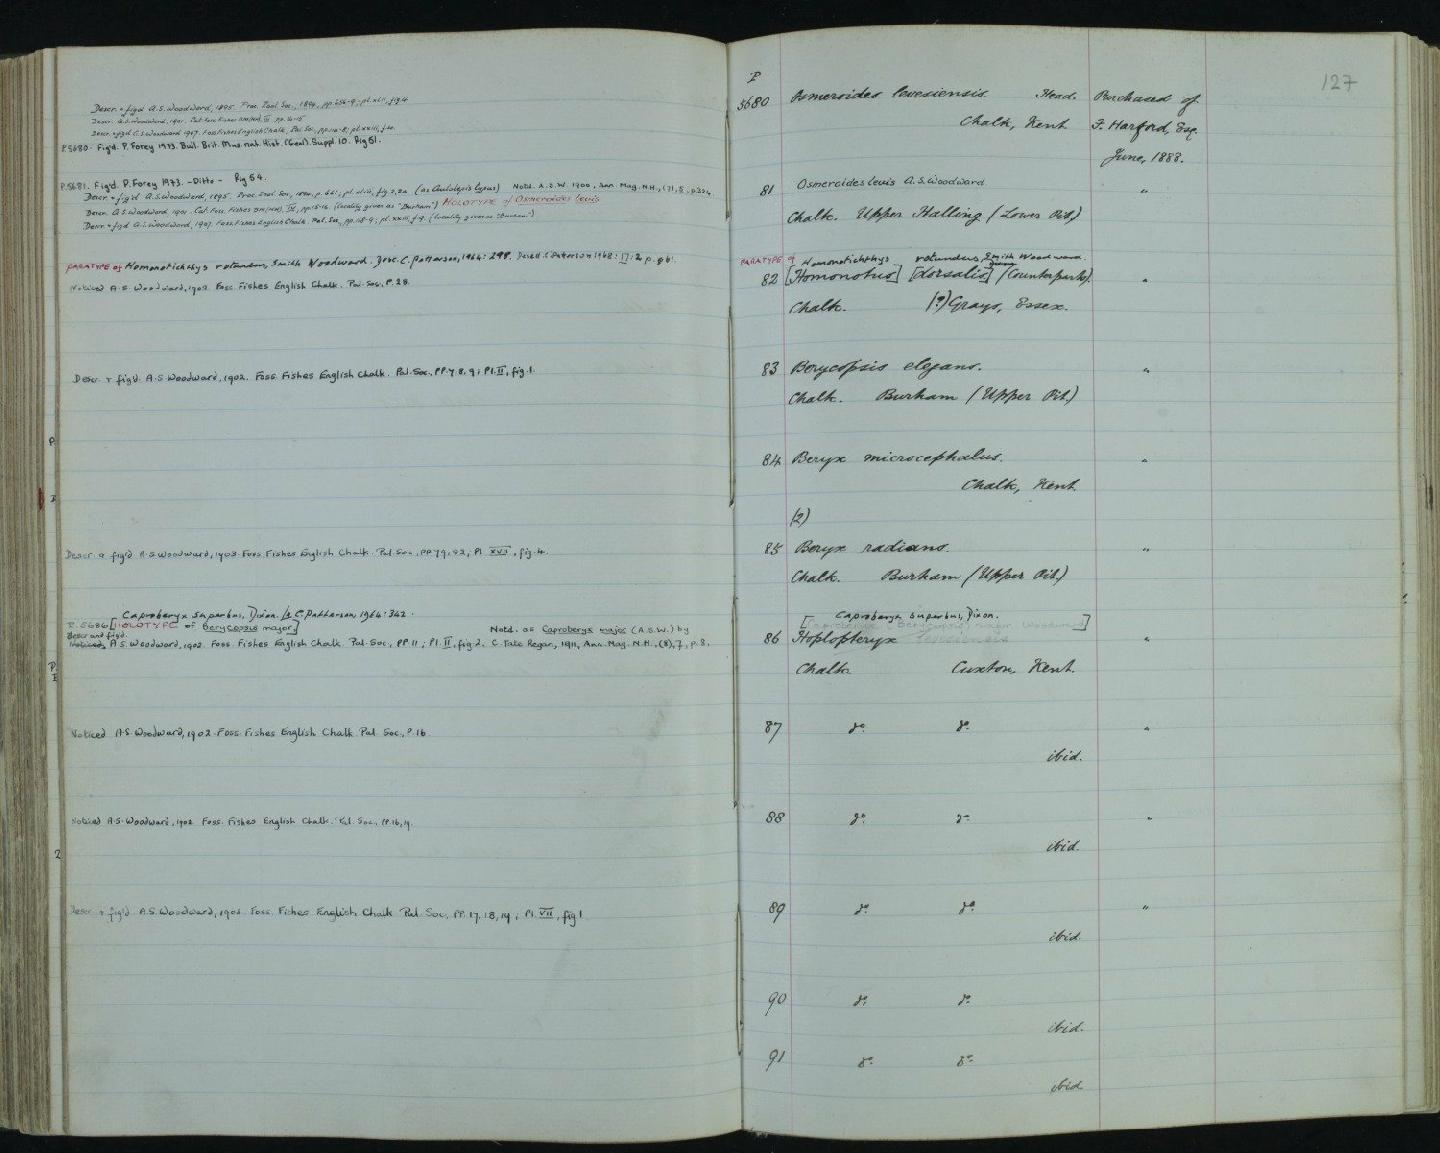 Descr. + fig'd A.S. Woodward, 1895. Proc. Zool. Soc., 1894, pp. 656-9, pl. xlii, fig. 4
Descr. A.S. Woodward, 1901. Cat. Foss. Fishes pp. 14-15
Descr. + fig'd A.S. Woodward 1907. Foss. Fishes English Chalk, Pal. Soc., pp. pl. xxiii,
P.5680. Fig'd. P. Forey 1973. Bull. Brit. Mus. nat. Hist. (Geol.) Suppl 10. Fig 51.
P.5681. Fig'd. P. Forey 1973. -Ditto- Fig 54.
Descr. + fig'd A.S. Woodward, 1895. Proc. Zool. Soc., 1894, p. 661; pl. xliii, fig. 2,2a (as Aulolepis typus) Notd. A.S.W. 1900, Ann. Mag. N.H., (7), 5, p. 324.
Descr. A.S. Woodward 1901. Cat. Foss. Fishes IV, pp. 15-16. (locality given as "Burham") HOLOTYPE of Osmeroides levis
Descr. + fig'd A.S. Woodward, 1907. Foss. Fishes English Chalk, Pal. Soc., pp. 118-9; pl. xxiii, f. 9. (locality given as "Burham")
PARATYPE of Homonotichthys rotundus, Smith Woodward. Desc. C. Patterson, 1964: 298. Descd. C. Patterson 1968: 17: 2 p. 86.
Noticed A.S. Woodward, 1902. Foss. Fishes English Chalk. Pal. Soc., P. 28.
Descr. + fig'd. A.S. Woodward, 1902. Foss. Fishes English Chalk. Pal. Soc., PP. 7, 8, 9; Pl. II, fig. 1.
Descr. + fig'd A.S. Woodward, 1903. Foss. Fishes English Chalk. Pal. Soc., PP 79, 82; Pl XVII, fig. 4.
Caproberyx superbus, Dixon. C. Patterson, 1964: 342.
P.5686 [HOLOTYPE of Berycopsis major]
Descr and fig'd.
Noticed, A.S. Woodward, 1902. Foss. Fishes English Chalk. Pal. Soc., PP 11; Pl. II, fig. 2.
Notd. as Caproberyx major (A.S.W.) by
C. Tate Regan, 1911, Ann. Mag. N.H., (8), 7, p. 8.
Noticed A.S. Woodward, 1902. Foss. Fishes English Chalk Pal. Soc., P. 16
Noticed A.S. Woodward, 1902 Foss. Fishes English Chalk. Pal. Soc., PP. 16, 19.
Descr + fig'd. A.S. Woodward, 1902. Foss. Fishes English Chalk Pal. Soc., PP. 17, 18, 19; Pl. VII, fig 1
127
P
5680 Osmeroides lewesiensis Head. Purchased of
Chalk, Kent F. Harford, Esq.
June, 1888.
81 Osmeroides levis A.S. Woodward "
Chalk. Upper Halling (Lower Pit)
PARATYPE of Homonotichthys rotundus, Smith Woodward.
82 [Homonotus] [dorsalis] (Counterparts). "
Chalk. (?) Grays, Essex.
83 Berycopsis elegans. "
Chalk. Burham (Upper Pit.)
84 Beryx microcephalus. "
Chalk, Kent
(2)
85 Beryx radians. "
Chalk. Burham (Upper Pit.)
Caproberyx superbus, Dixon.
86 Hoplopteryx lewesiensis "
Chalk. Cuxton, Kent.
87 do. do. "
ibid.
88 do. do. "
ibid.
89 do. do. "
ibid.
90 do. do.
ibid.
91 do. do.
ibid